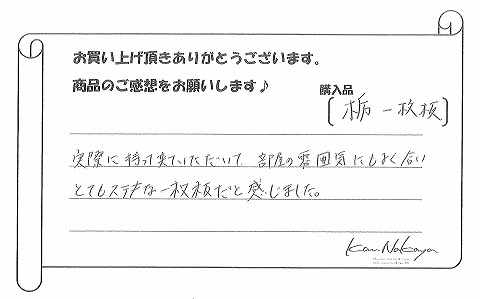 お買い上げ頂きありがとうございます。
商品のご感想をお願いします♪
購入品
[栃一枚板]
実際に持って来ていただいて、部屋の雰囲気にもよく合い
とてもステキな一枚板だと感じました。
Kan Nakaya